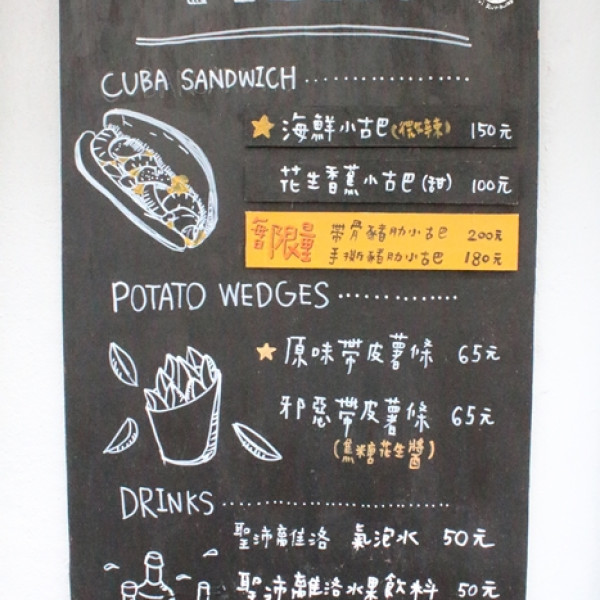 CUBA SANDWICH
海鮮小古巴(微辣) 150元
花生香蕉小古巴(甜) 100元
每日限量
帶骨豬肋小古巴 200元
手撕豬肋小古巴 180元
POTATO WEDGES
原味帶皮薯條 65元
邪惡帶皮薯條 65元
(焦糖花生醬)
DRINKS
聖沛離洛 氣泡水 50元
聖沛離洛水果飲料 50元